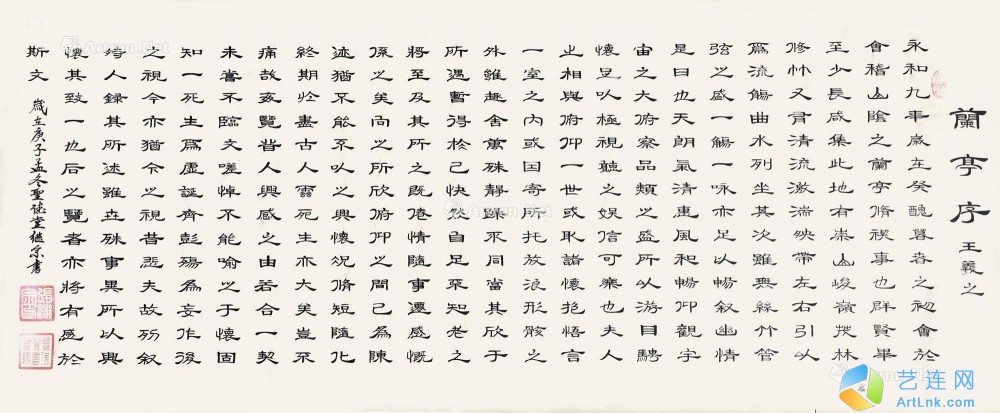 蘭亭序 王羲之
永和九年歲在癸醜暮春之初會於
會稽山陰之蘭亭脩禊事也群賢畢
至少長咸集此地有崇山峻嶺茂林
修竹又有清流激湍映帶左右引以
為流觴曲水列坐其次雖無絲竹管
弦之盛一觴一詠亦足以暢敘幽情
是日也天朗氣清惠風和暢仰觀宇
宙之大俯察品類之盛所以游目騁
懷足以極視聽之娛信可樂也夫人
之相與俯仰一世或取諸懷抱悟言
一室之內或因寄所托放浪形骸之
外雖趣舍萬殊靜躁不同當其欣于
所遇暫得於己快然自足不知老之
將至及其所之既倦情隨事遷感慨
係之矣向之所欣俯仰之間已為陳
迹猶不能不以之興懷況脩短隨化
終期於盡古人雲死生亦大矣豈不
痛哉每覽昔人興感之由若合一契
未嘗不臨文嗟悼不能喻之于懷固
知一死生為虛誕齊彭殤為妄作後
之視今亦猶今之視昔悲夫故列敘
時人錄其所述雖世殊事異所以興
懷其致一也后之覽者亦將有感於
斯文
歲在庚子孟冬聖德堂繼宗書
艺连网
ArtLnk.com